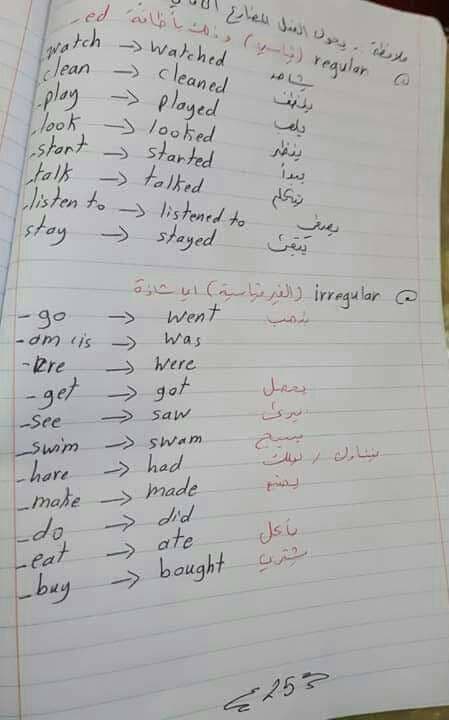 ملاحظة - يحول الفعل المضارع
@ regular (قياسي) وذلك بأضافة ed-
watch → watched يشاهد
clean → cleaned ينظف
-play → played يلعب
-look → looked ينظر
-start → started يبدأ
-talk → talked يتكلم
-listen to → listened to يصغي
stay → stayed يبقئ
@ irregular (الغير قياسية) اي الشاذة
-go → went يذهب
-am is → was
-are → were
-get → got يحصل
-see → saw يرئ
-swim → swam يسبح
-have → had يتناول / يملك
-make → made يصنع
-do → did
-eat → ate يأكل
-buy → bought يشتري
253